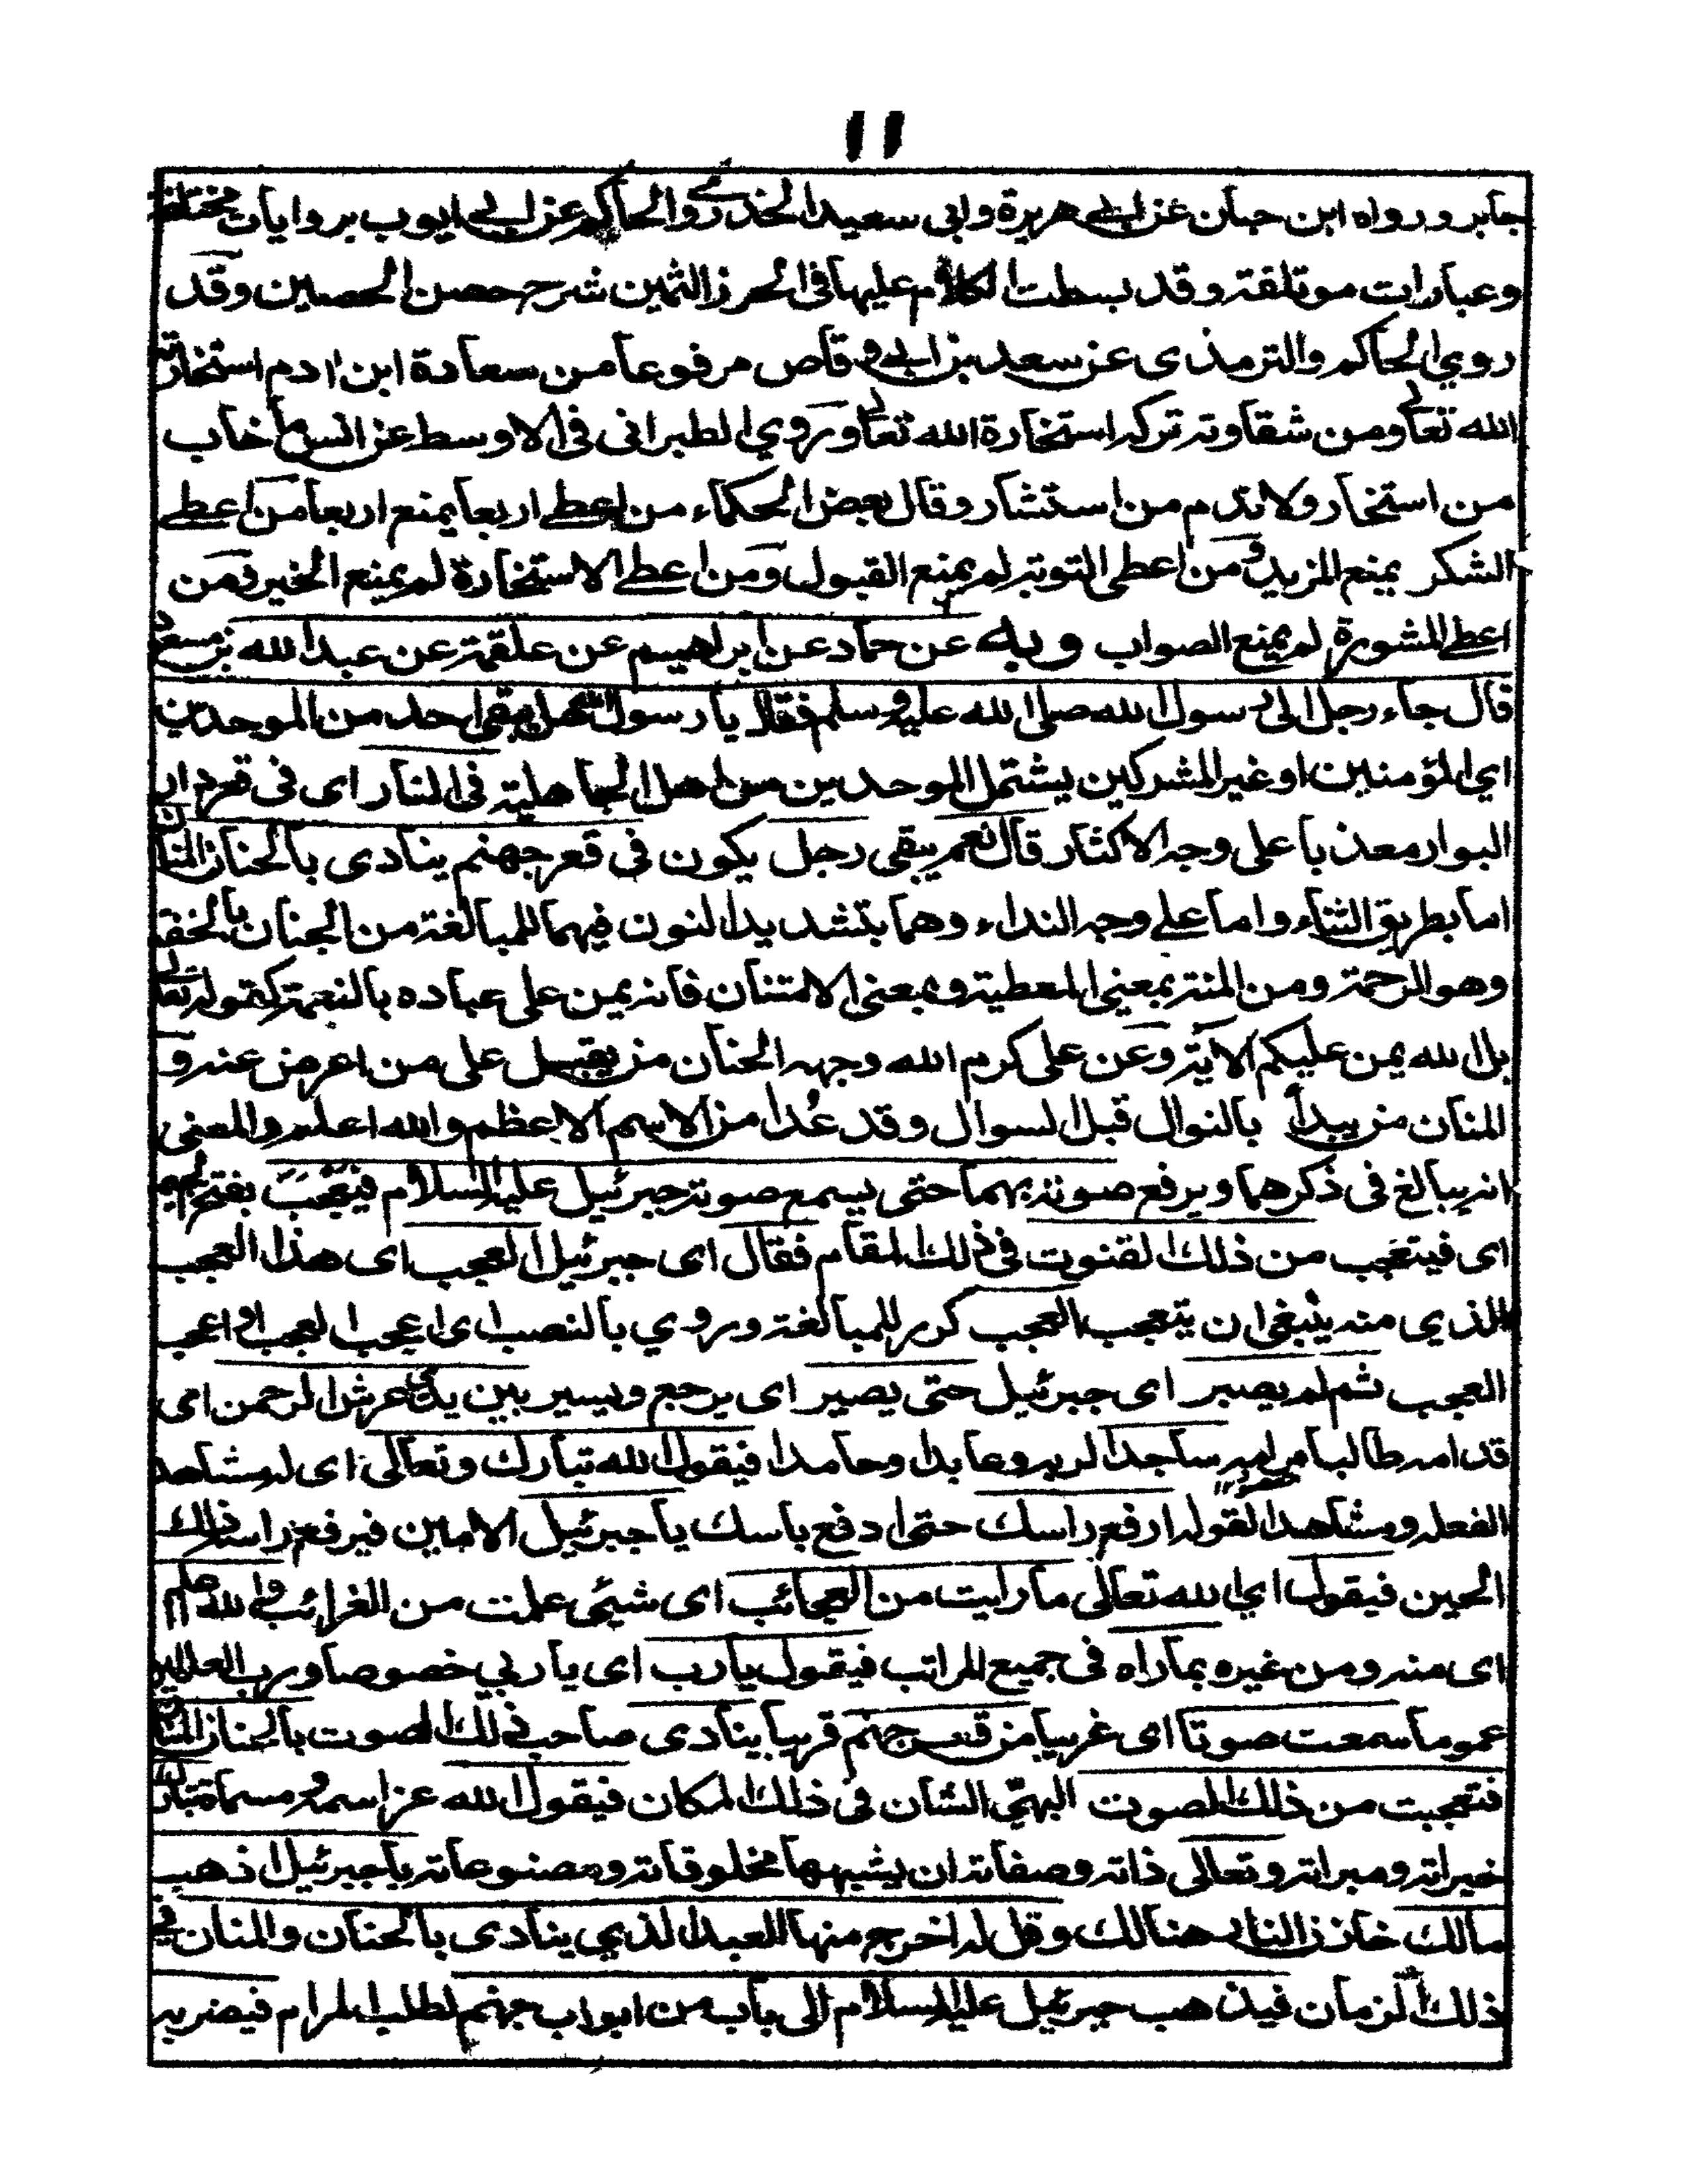 ١١
جابر ورواه ابن حبان عن ابي هريرة وابي سعيد الخدري والحاكم عن ابي ايوب بروايات مختلفة
وعبارات موتلفة وقد بسطت الكلام عليها في الحرز الثمين شرح حصن الحصين وقد
روي الحاكم والترمذي عن سعد بن ابي وقاص مرفوعا من سعادة ابن ادم استخارته
الله تعالى ومن شقاوته تركه استخارة الله تعالى وروي الطبراني في الاوسط عن انس ما خاب
من استخار ولا ندم من استشار وقال بعض الحكماء من اعطي اربعا يمنع اربعا من اعطي
الشكر يمنع المزيد ومن اعطي التوبة لم يمنع القبول ومن اعطي الاستخارة لم يمنع الخير ومن
اعطي المشورة لم يمنع الصواب وبه عن حماد عن ابراهيم عن علقمة عن عبد الله بن مسعود
قال جاء رجل الى رسول الله صلى الله عليه وسلم فقال يا رسول الله هل يبقى احد من الموحدين
اي المؤمنين او غير المشركين يشتمل الموحدين من اهل الجاهلية في النار اى في قعر دار
البوار معذبا على وجه الاكثار قال نعم يبقى رجل يكون في قعر جهنم ينادى بالحنان المنان
اما بطريق الثناء واما على وجه النداء وهما بتشديد النون فيهما للمبالغة من الحنان بالخفة
وهو الرحمة ومن المنة بمعني العطية وبمعنى الامتنان فانه يمن على عباده بالنعمة كقوله تعالى
بل الله يمن عليكم الاية وعن على كرم الله وجهه الحنان من يقبل على من اعرض عنه و
المنان من يبدأ بالنوال قبل السوال وقد عُدا من الاسم الاعظم والله اعلم والمعنى
انه يبالغ في ذكرهما ويرفع صوته بهما حتى يسمع صوته جبرئيل عليه السلام فيَعْجَبَ بفتح الجيم
اى فيتعجب من ذلك القنوت في ذلك المقام فقال اى جبرئيل العجب اى هذا العجب
الذي منه ينبغي ان يتعجب العجب كرر للمبالغة وروي بالنصب اى اعجب العجب او اعجب
العجب ثم لم يصبر اى جبرئيل حتى يصير اى يرجع ويسير بين يدي عرش الرحمن اى
قدامه طالبا من امره ساجدا لربه وعابدا وحامدا فيقول الله تبارك وتعالى اى له مشاهد
الفعله ومشاهدا لقوله ارفع راسك حتى ادفع باسك يا جبرئيل الامين فيرفع راسه في ذلك
الحين فيقول اي الله تعالى ما رايت من العجائب اى شيئى علمت من الغرائب والله اعلم
اى منه ومن غيره بما راه في جميع المراتب فيقول يا رب اى يا ربي خصوصا ورب العالمين
عموما سمعت صوتا اى غريبا من قعر جهنم قريبا ينادى صاحب ذلك الصوت بالحنان المنان
فتعجبت من ذلك الصوت البهيّ الشان في ذلك المكان فيقول الله عز اسمه ومسماه تبارك
خيراته ومبراته وتعالى ذاته وصفاته ان يشبهها مخلوقاته ومصنوعاته يا جبرئيل اذهب
مالك خازن النار هنالك وقل له اخرج منها العبد الذي ينادى بالحنان والمنان في
ذلك الزمان فيذهب جبرئيل عليه السلام الى باب من ابواب جهنم لطلب المرام فيضربه